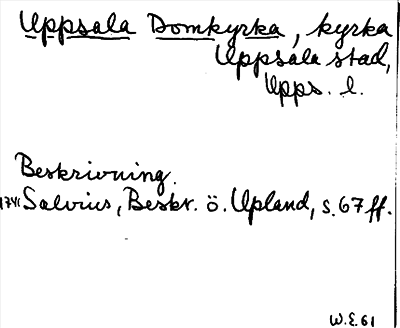 Uppsala Domkyrka, kyrka
Uppsala stad,
Upps. l.
Beskrivning.
1741 Salvius, Beskr. ö. Upland, s. 67 ff.
W.E. 61